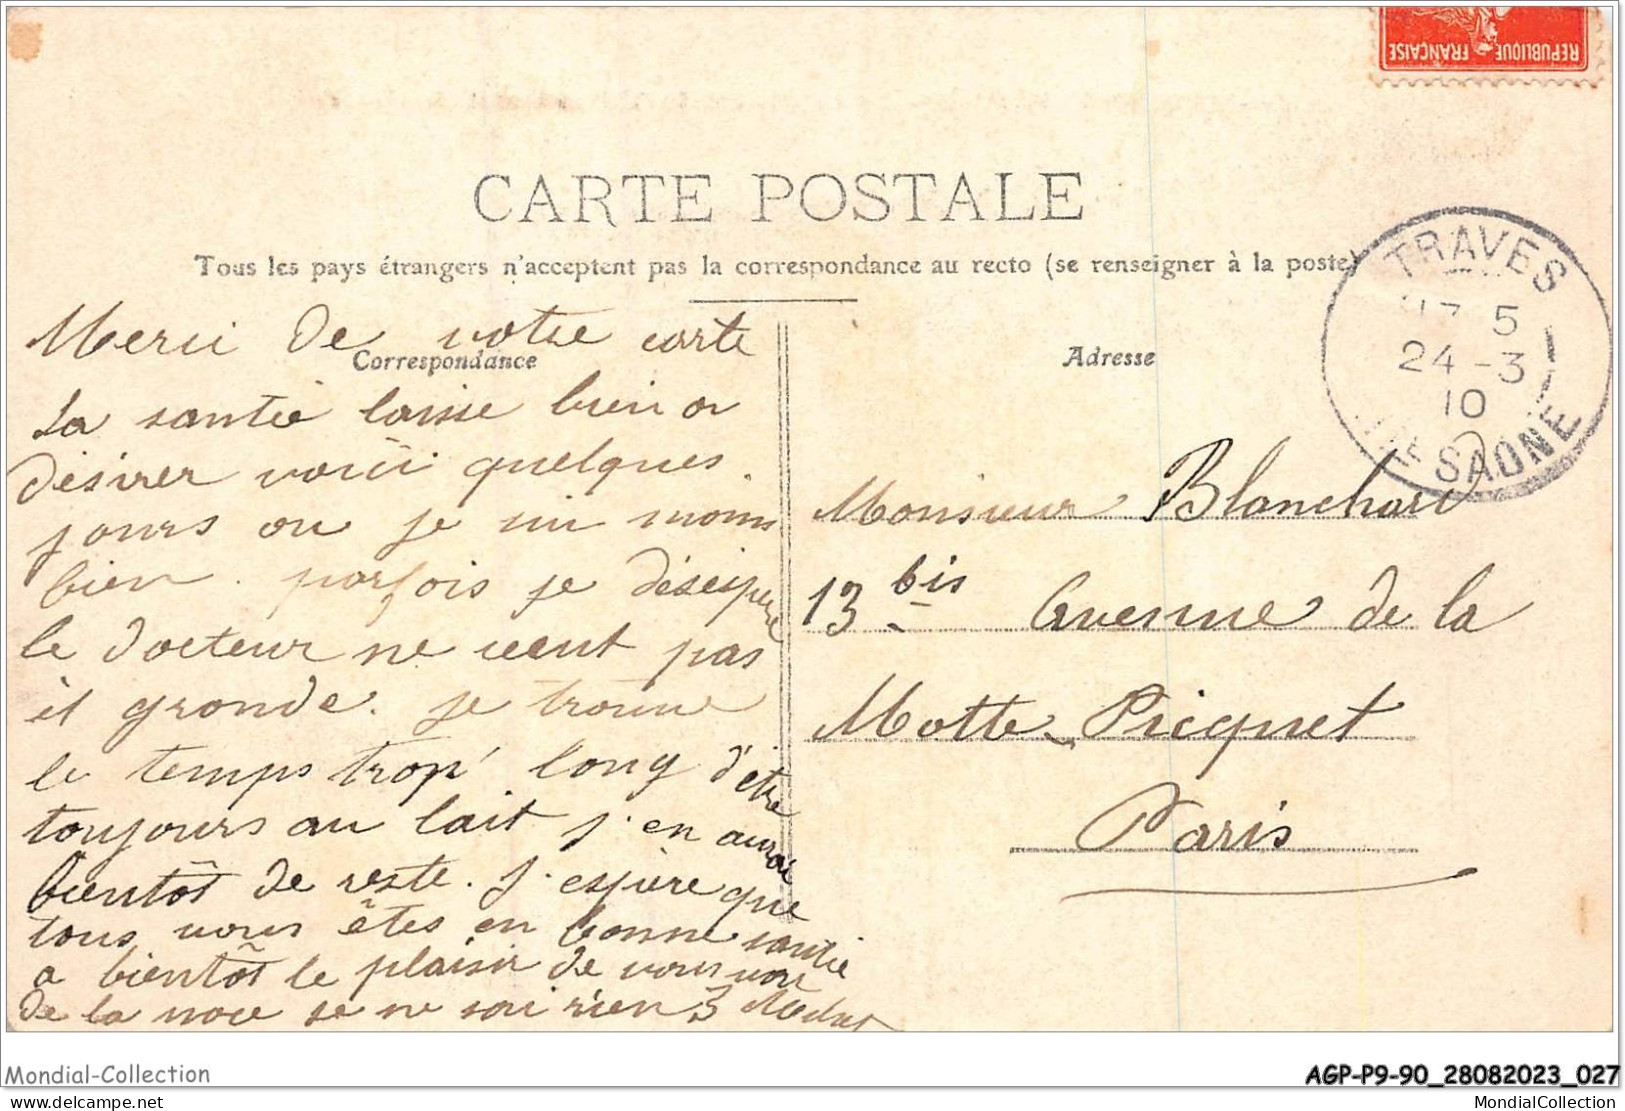 REPUBLIQUE FRANÇAISE
CARTE POSTALE
Tous les pays étrangers n'acceptent pas la correspondance au recto (se renseigner à la poste)
TRAVES
17 5
24 - 3
10
HTE SAONE
Correspondance
Merci de votre carte
La santé laisse bien a
désirer voici quelques
jours ou je sui moins
bien. parfois je désespère
le docteur ne veut pas
il gronde. je trouve
le temps trop long d'être
toujours au lait j'en aurai
bientôt de reste. j'espère que
tous vous êtes en bonne santé
a bientôt le plaisir de vous voir
de la noce je ne sai rien
Adresse
Monsieur Blanchard
13 bis Avenue de la
Motte-Picquet
Paris
Mondial-Collection
AGP-P9-90_28082023_027
www.delcampe.net
MondialCollection